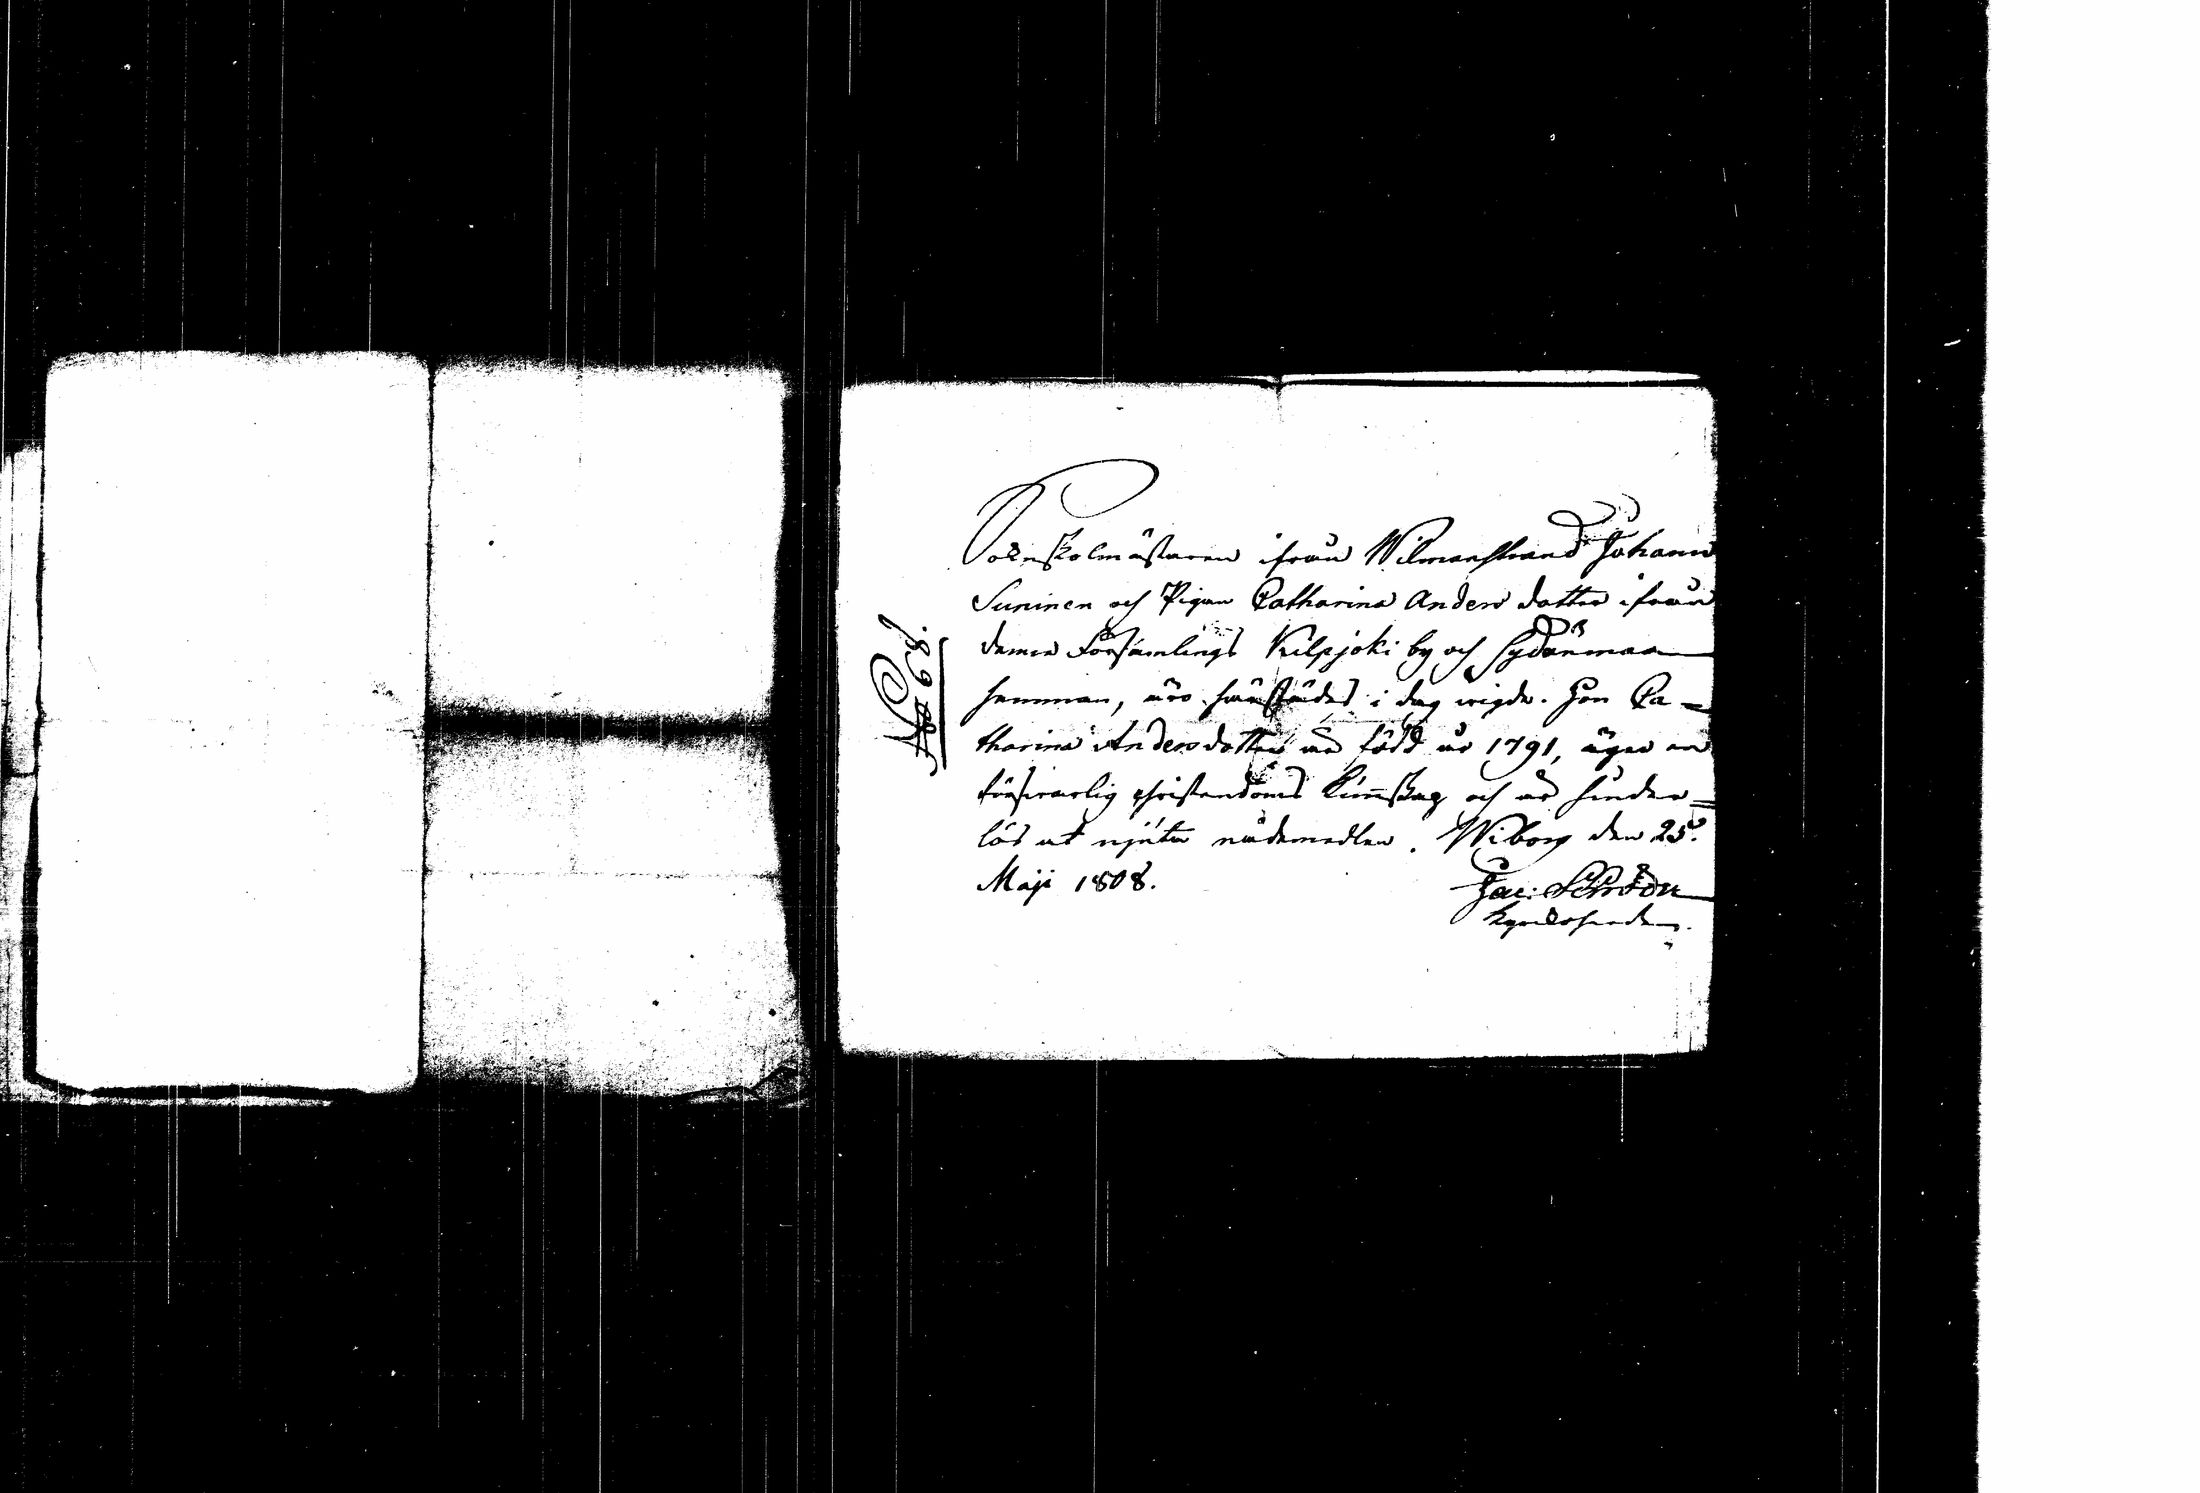 No 68.
Sokneskolmästaren ifrån Wilmanstrand Johann
Suninen och Pigan Catharina Anders dotter ifrån
denna Församlings Kilpjoki by och Sydänmaa
hemman, äro härstädes i dag wigde. Hon Ca=
tharina Andersdotter är född år 1791, äger en
försvarlig christendoms kunskap och är hinder=
lös at njuta nådemedlen. Wiborg den 25.
Maji 1808.
Jac:
kyrkoherde.